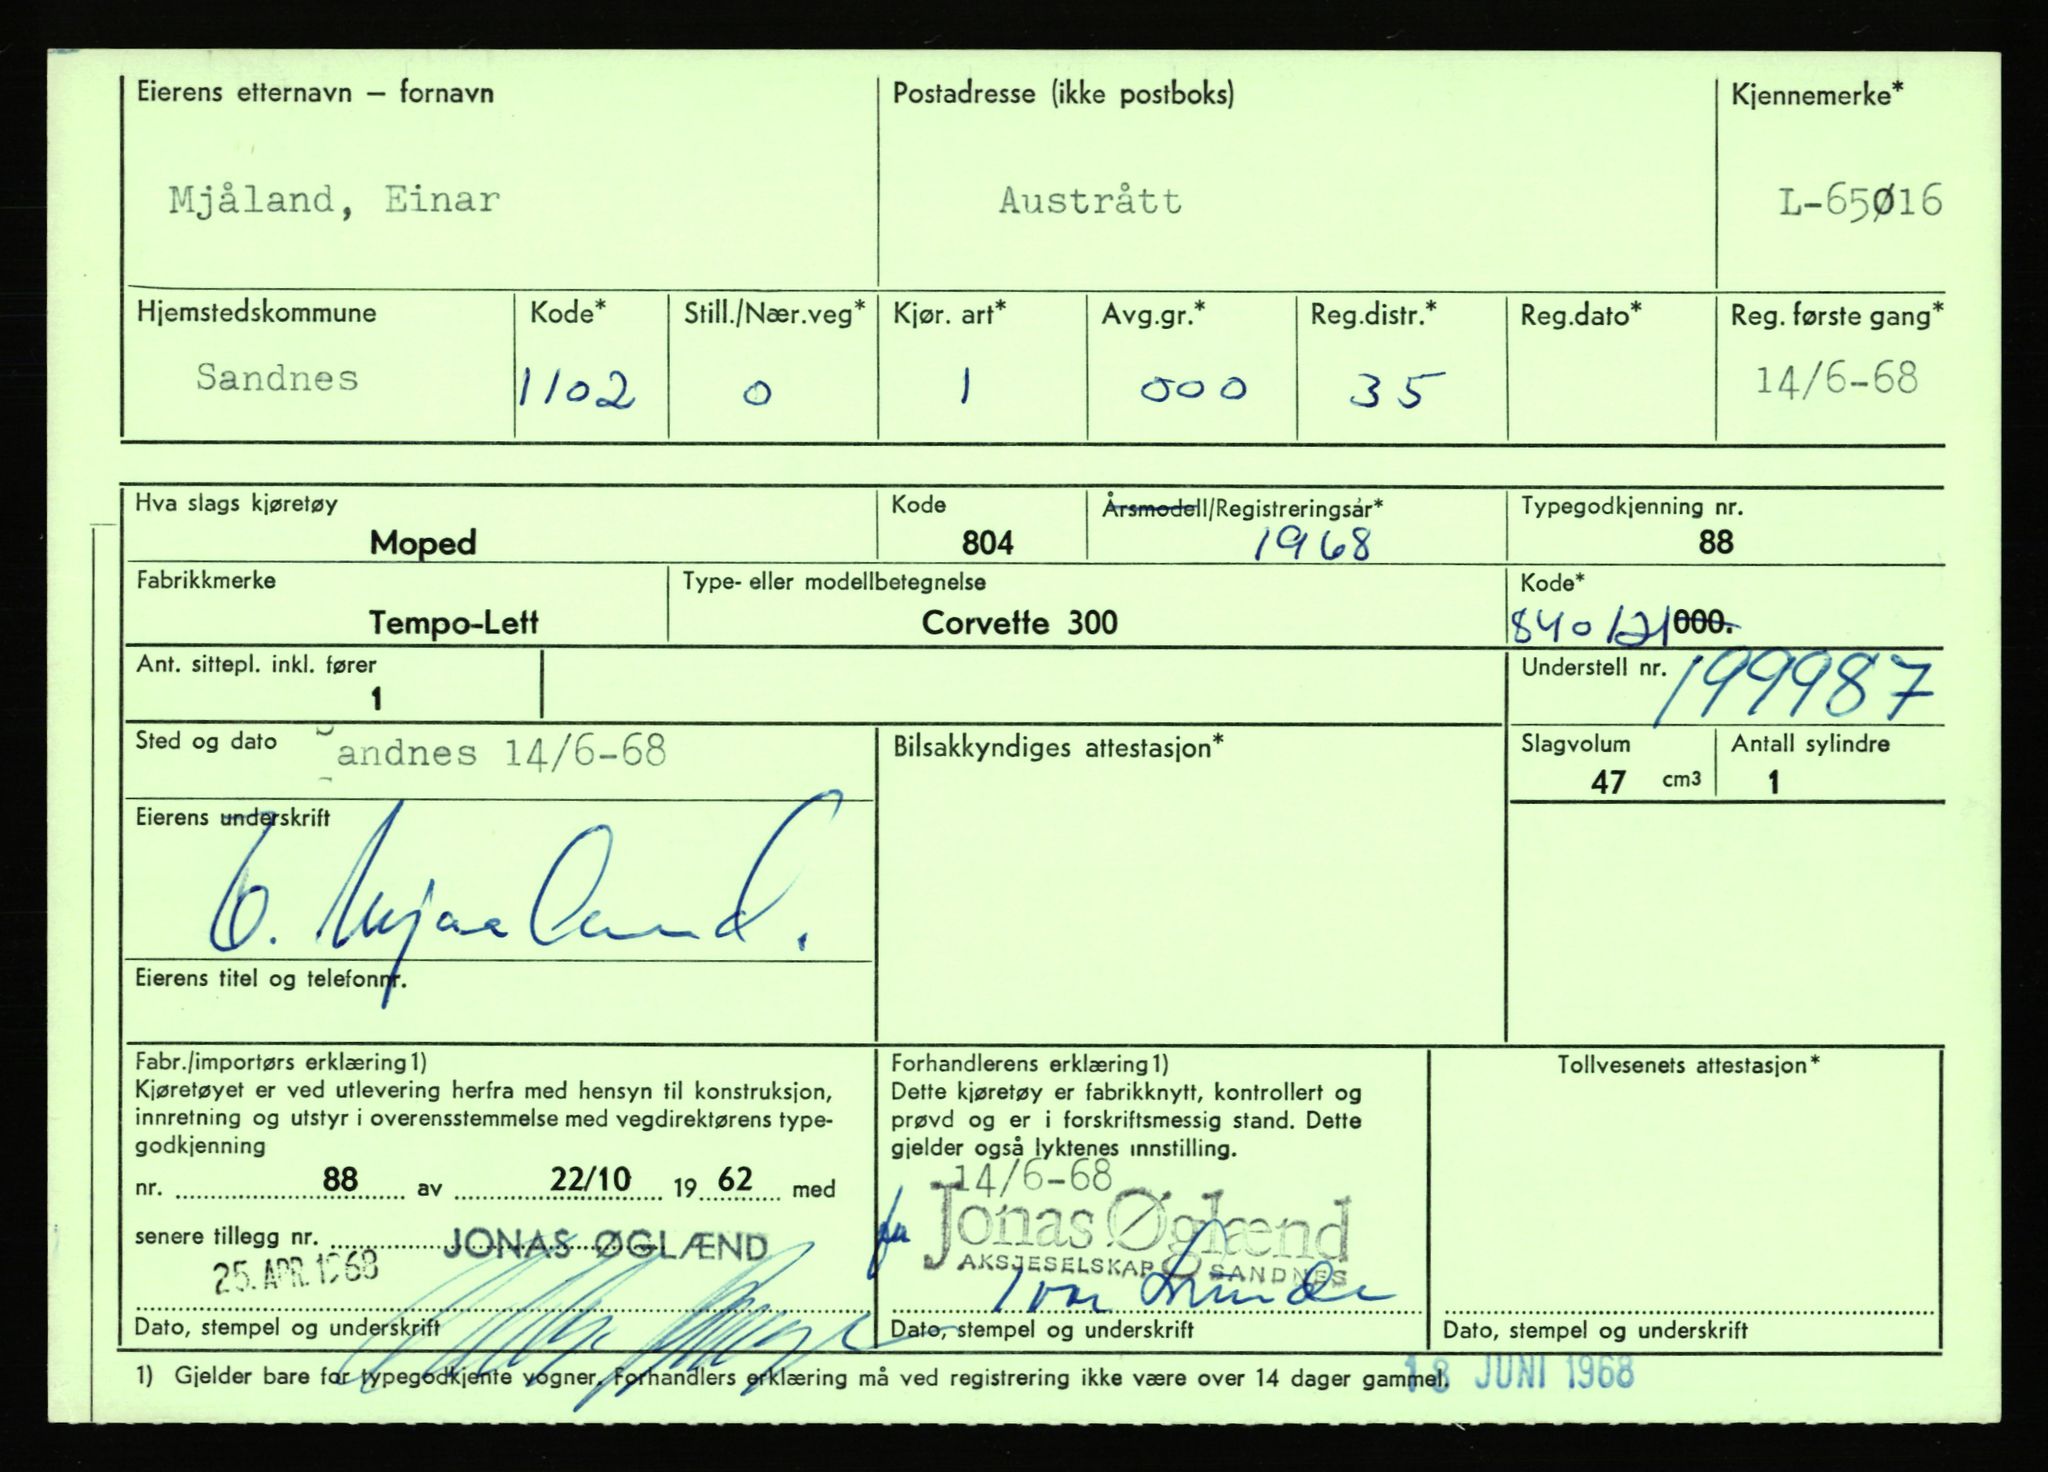 Eierens etternavn – fornavn Postadresse (ikke postboks) Kjennemerke*
Mjåland, Einar Austrått L-65016
Hjemstedskommune Kode* Still./Nær.veg* Kjør. art* Avg.gr.* Reg.distr.* Reg.dato* Reg. første gang*
Sandnes 1102 0 1 000 35 14/6-68
Hva slags kjøretøy Kode Årsmodell/Registreringsår* Typegodkjenning nr.
Moped 804 1968 88
Fabrikkmerke Type- eller modellbetegnelse Kode*
Tempo-Lett Corvette 300 840121000.
Ant. sittepl. inkl. fører Understell nr. 199987
1
Sted og dato Sandnes 14/6-68 Bilsakkyndiges attestasjon* Slagvolum Antall sylindre
47 cm3 1
Eierens underskrift
E. Mjaaland.
Eierens titel og telefonnr.
Fabr./importørs erklæring1) Forhandlerens erklæring1) Tollvesenets attestasjon*
Kjøretøyet er ved utlevering herfra med hensyn til konstruksjon, Dette kjøretøy er fabrikknytt, kontrollert og
innretning og utstyr i overensstemmelse med vegdirektørens type- prøvd og er i forskriftsmessig stand. Dette
godkjenning gjelder også lyktenes innstilling.
nr. 88 av 22/10 19 62 med 14/6-68
senere tillegg nr. JONAS ØGLÆND Jonas Øglænd
25. APR. 1968 AKSJESELSKAP SANDNES
Dato, stempel og underskrift Dato, stempel og underskrift Dato, stempel og underskrift
1) Gjelder bare for typegodkjente vogner. Forhandlers erklæring må ved registrering ikke være over 14 dager gammel. 18 JUNI 1968